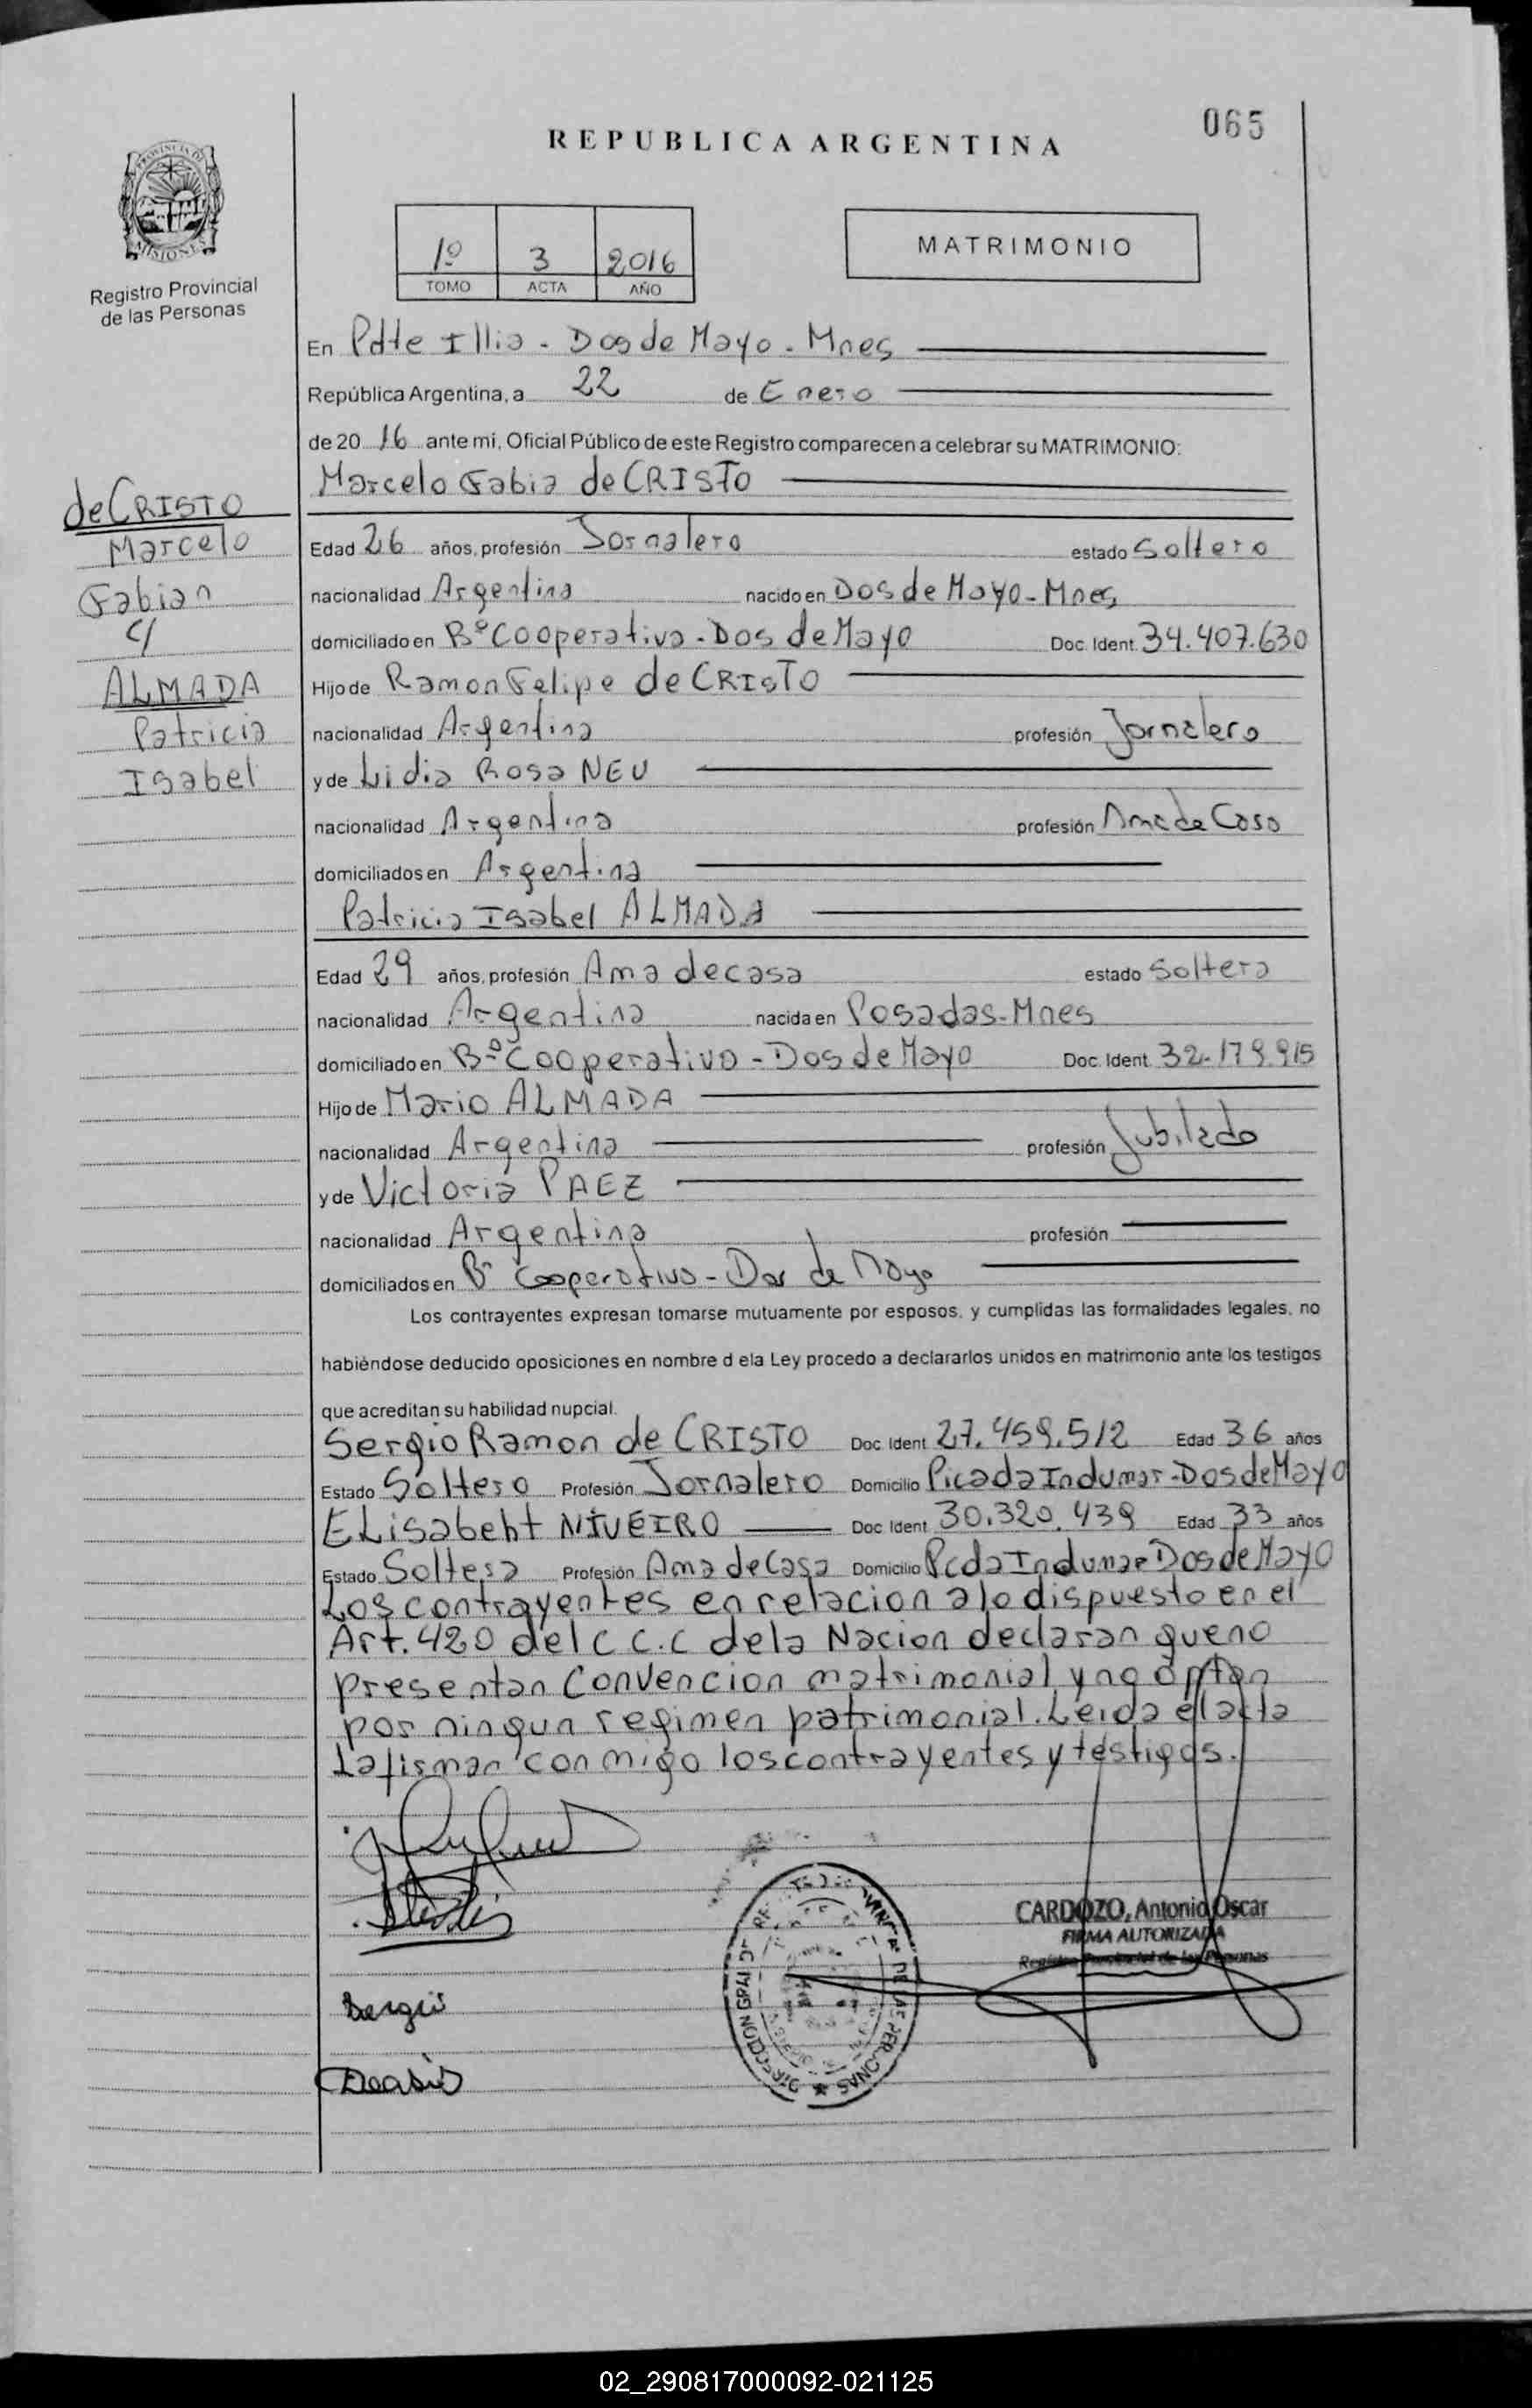 065
REPUBLICA ARGENTINA
PROVINCIA DE
MISIONES
Registro Provincial
de las Personas
1º 3 2016
TOMO ACTA AÑO
MATRIMONIO
En Pdte Illia - Dos de Mayo - Mnes
República Argentina, a 22 de Enero
de 20 16 ante mi, Oficial Público de este Registro comparecen a celebrar su MATRIMONIO:
Marcelo Fabia de CRISTO
deCRISTO
Marcelo
Fabian
c/
ALMADA
Patricia
Isabel
Edad 26 años, profesión Jornalero estado Soltero
nacionalidad Argentina nacido en Dos de Mayo - Mnes
domiciliado en Bº Cooperativa - Dos de Mayo Doc. Ident. 34.407.630
Hijo de Ramon Felipe de CRISTO
nacionalidad Argentina profesión Jornalero
y de Lidia Rosa NEU
nacionalidad Argentina profesión Ama de Casa
domiciliados en Argentina
Patricia Isabel ALMADA
Edad 29 años, profesión Ama de casa estado Soltera
nacionalidad Argentina nacida en Posadas - Mnes
domiciliado en Bº Cooperativo - Dos de Mayo Doc. Ident. 32.179.915
Hijo de Mario ALMADA
nacionalidad Argentina profesión Jubilado
y de Victoria PAEZ
nacionalidad Argentina profesión
domiciliados en Bº Cooperativo - Dos de Mayo
Los contrayentes expresan tomarse mutuamente por esposos, y cumplidas las formalidades legales, no
habiéndose deducido oposiciones en nombre d ela Ley procedo a declararlos unidos en matrimonio ante los testigos
que acreditan su habilidad nupcial.
Sergio Ramon de CRISTO Doc. Ident 27.459.512 Edad 36 años
Estado Soltero Profesión Jornalero Domicilio Picada Indumar - Dos de Mayo
ELisabeht NIVEIRO Doc. Ident 30.320.439 Edad 33 años
Estado Soltera Profesión Ama de Casa Domicilio Pcda Indumar Dos de Mayo
Los contrayentes en relacion a lo dispuesto en el
Art. 420 del C.C.C de la Nacion declaran que no
presentan Convencion matrimonial y no optan
por ningun regimen patrimonial. Leida el acta
la firman con migo los contrayentes y testigos.
CARDOZO, Antonio Oscar
FIRMA AUTORIZADA
Registro Provincial de las Personas
Sergio
02_290817000092-021125